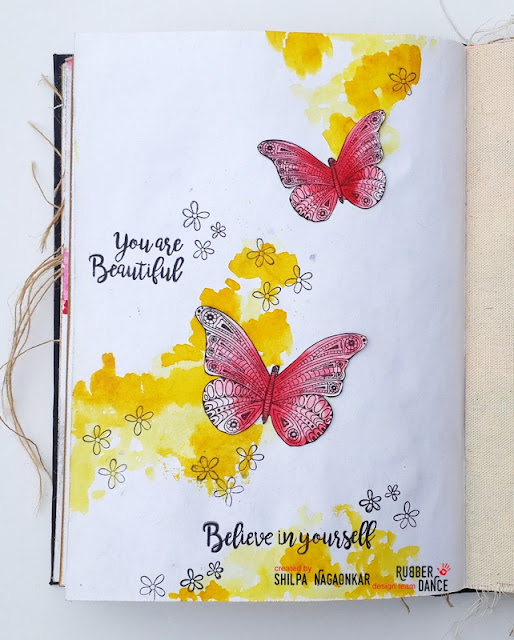 You are
Beautiful
Believe in yourself
created by
SHILPA NAGAONKAR
RUBBER
DANCE
design team